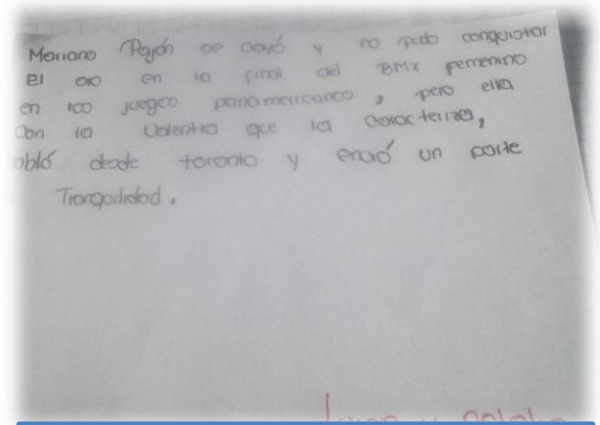 Mariana Pajón se cayó y no pudo conquistar
El oro en la final del BMX femenino
en los juegos panamericanos, pero ella
Con la Valentia que la caracteriza,
abló desde toronto y envió un parte
Tranquilidad.